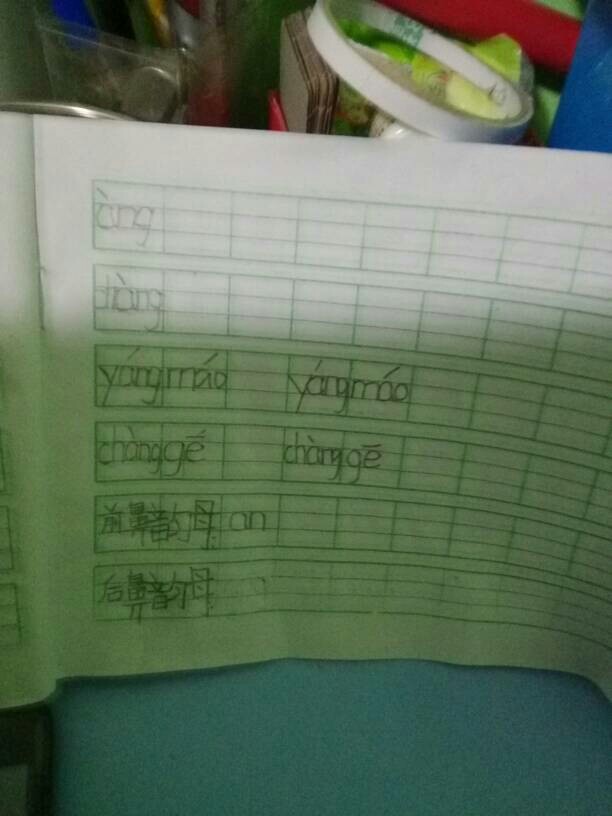 àng
chàng
yángmáo yángmáo
chànggē chànggē
前鼻韵母 an
后鼻韵母